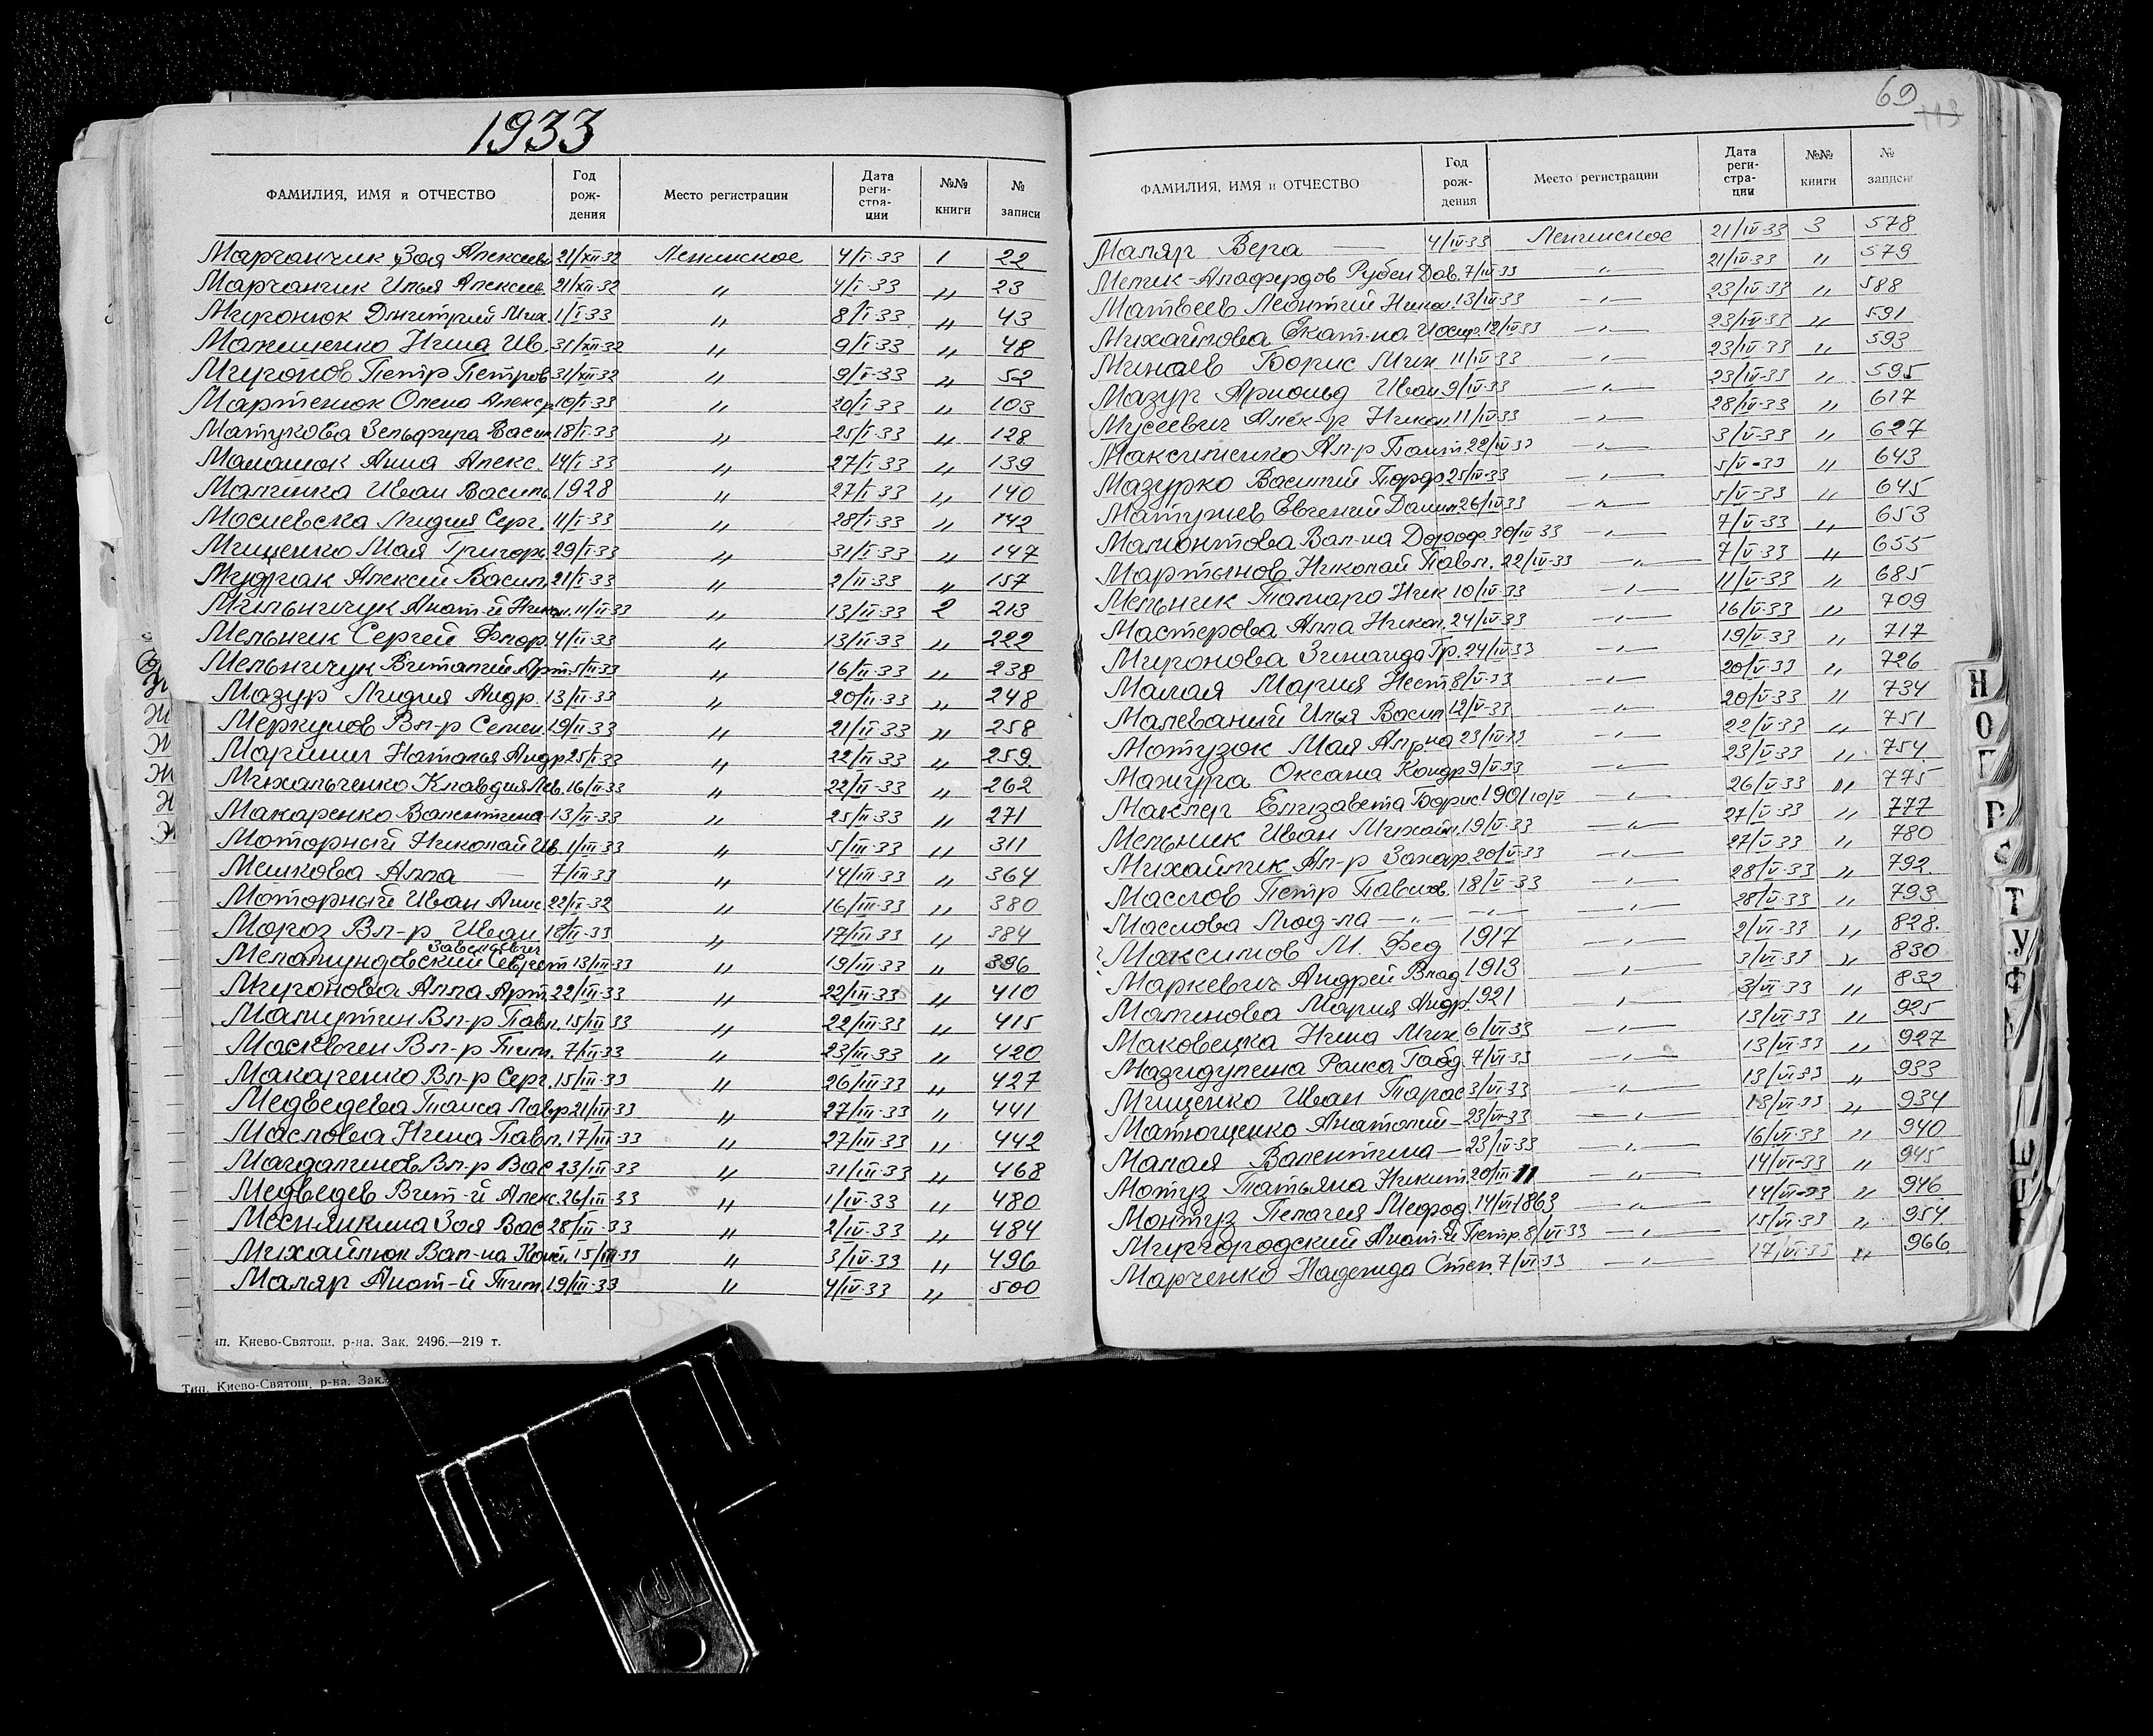 1933
ФАМИЛИЯ, ИМЯ и ОТЧЕСТВО Год рождения Место регистрации Дата регистрации №№ книги № записи
Марчанчик Зоя Алексеев 21/XII-32 Ленинское 4/I-33 1 22
Марчанчик Илья Алексеев. 21/XII-32 " 4/I-33 " 23
Миронюк Дмитрий Мих. 1/I-33 " 8/I-33 " 43
Нина Ив. 31/XII-32 " 9/I-33 " 48
Миронов Петр Петров 31/XII-32 " 9/I-33 " 52
Мартенюк Олена Алекср 10/I-33 " 20/I-33 " 103
Матукова Земфира Васил 18/I-33 " 25/I-33 " 128
Маланюк Анна Алекс. 14/I-33 " 27/I-33 " 139
Малинка Иван Василь 1928 " 27/I-33 " 140
Мосиевска Лидия Серг. 11/I-33 " 28/I-33 " 142
Мищенко Мая Григорь 29/I-33 " 31/I-33 " 147
Мудрак Алексей Васил 21/I-33 " 2/II-33 " 157
Мильничук Анат-й Никол. 11/II-33 " 13/II-33 2 213
Мельник Сергей Флор. 4/II-33 " 13/II-33 " 222
Мельничук Виталий Арт. 5/II-33 " 16/II-33 " 238
Мазур Лидия Андр. 13/II-33 " 20/II-33 " 248
Меркулов Вл-р Семен. 19/II-33 " 21/II-33 " 258
Маринич Наталья Андр 25/I-33 " 22/II-33 " 259.
Михальченко Клавдия Лев. 16/II-33 " 22/II-33 " 262
Макаренко Валентина 13/II-33 " 25/II-33 " 271
Моторный Николай Ив. 1/III-33 " 5/III-33 " 311
Мешкова Алла — 7/III-33 " 14/III-33 " 364
Моторный Иван 22/II-32 " 16/III-33 " 380
Мороз Вл-р Иван 18/II-33 " 17/III-33 " 384
13/III-33 " 19/III-33 " 396
Миронова Алла Арт. 22/III-33 " 22/III-33 " 410
Малютин Вл-р Павл. 15/III-33 " 22/III-33 " 415
Вл-р Тим. 7/III-33 " 23/III-33 " 420
Макаренко Вл-р Серг. 15/III-33 " 26/III-33 " 427
Медведева Таиса Лавр 21/III-33 " 27/III-33 " 441
Маслова Нина Павл. 17/III-33 " 27/III-33 " 442
Магдалинов Вл-р Вас 23/III-33 " 31/III-33 " 468
Медведев Вит-й Алекс. 26/III-33 " 1/IV-33 " 480
Меснянкина Зоя Вас 28/III-33 " 2/IV-33 " 484
Михайлюк Вал-на Конс. 15/III-33 " 3/IV-33 " 496
Маляр Анат-й Тим. 19/III-33 " 4/IV-33 " 500
ип. Киево-Святош. р-на. Зак. 2496.—219 т.
Тип. Киево-Святош. р-на. Зак.
69
113
ФАМИЛИЯ, ИМЯ и ОТЧЕСТВО Год рождения Место регистрации Дата регистрации №№ книги № записи
Маляр Вера — 4/IV-33 Ленинское 21/IV-33 3 578
Мелик-Алафердов Рубен Дав. 7/IV-33 —"— 21/IV-33 " 579
Матвеев Леонтий Никол. 13/IV-33 —"— 23/IV-33 " 588
Михайлова Екат-на Иосиф. 12/IV-33 —"— 23/IV-33 " 591
Минаев Борис Мих 11/IV-33 —"— 23/IV-33 " 593
Мазур Арнольд Иван 9/IV-33 —"— 23/IV-33 " 595
Мусеевич Алек-р Никол 11/IV-33 —"— 28/IV-33 " 617
Максименко Ал-р 22/IV-33 —"— 3/V-33 " 627
Мазурко Василий Порф 25/IV-33 —"— 5/V-33 " 643
Евгений Данил. 26/IV-33 —"— 5/V-33 " 645
Мамонтова Вал-на Дороф. 30/IV-33 —"— 7/V-33 " 653
Мартынов Николай Павл. 22/IV-33 —"— 7/V-33 " 655
Мельник Тамара Ник 10/IV-33 —"— 11/V-33 " 685
Мастерова Алла Никол. 24/IV-33 —"— 16/V-33 " 709
Миронова Зинаида Гр. 24/IV-33 —"— 19/V-33 " 717
Малая Мария Нест 8/V-33 —"— 20/V-33 " 726
Малеваный Илья Васил 12/V-33 —"— 20/V-33 " 734
Мотузок Мая Ал-р-на 23/IV-33 —"— 22/V-33 " 751
Мажура Оксана Кондр 9/V-33 —"— 23/V-33 " 754
Маклер Елизавета Борис 1901 10/V —"— 26/V-33 " 775
Мельник Иван Михайл. 19/V-33 —"— 27/V-33 " 777
Михайлик Ал-р Захар. 20/V-33 —"— 27/V-33 " 780
Маслов Петр Павлов. 18/V-33 —"— 28/V-33 " 792
Маслова Люд-ла —"— —"— —"— 28/V-33 " 793
Максимов М. Фед 1917 —"— 2/VI-33 " 828.
Маркевич Андрей Влад 1913 —"— 3/VI-33 " 830
Малинова Мария Андр. 1921 —"— 3/VI-33 " 832
Маковецка Нина Мих 6/VI-33 —"— 13/VI-33 " 925
Мазидулина Раиса Габд. 7/VI-33 —"— 13/VI-33 " 927
Мищенко Иван Тарас 3/VI-33 —"— 13/VI-33 " 933
Матющенко Анатолий — 23/VI-33 —"— 13/VI-33 " 934
Малая Валентина — 23/IV-33 —"— 16/VI-33 " 940
Мотуз Татьяна Никит 20/III-11 —"— 14/VI-33 " 945
Монтуз Пелагея Мефод. 14/VI 1863 —"— 14/VI-33 " 946
Миргородский Анат-й Петр. 8/VI-33 —"— 15/VI-33 " 954
Марченко Надежда Степ. 7/VI-33 —"— 17/VI-33 " 966
Н
О
П
Р
С
Т
У
Ф